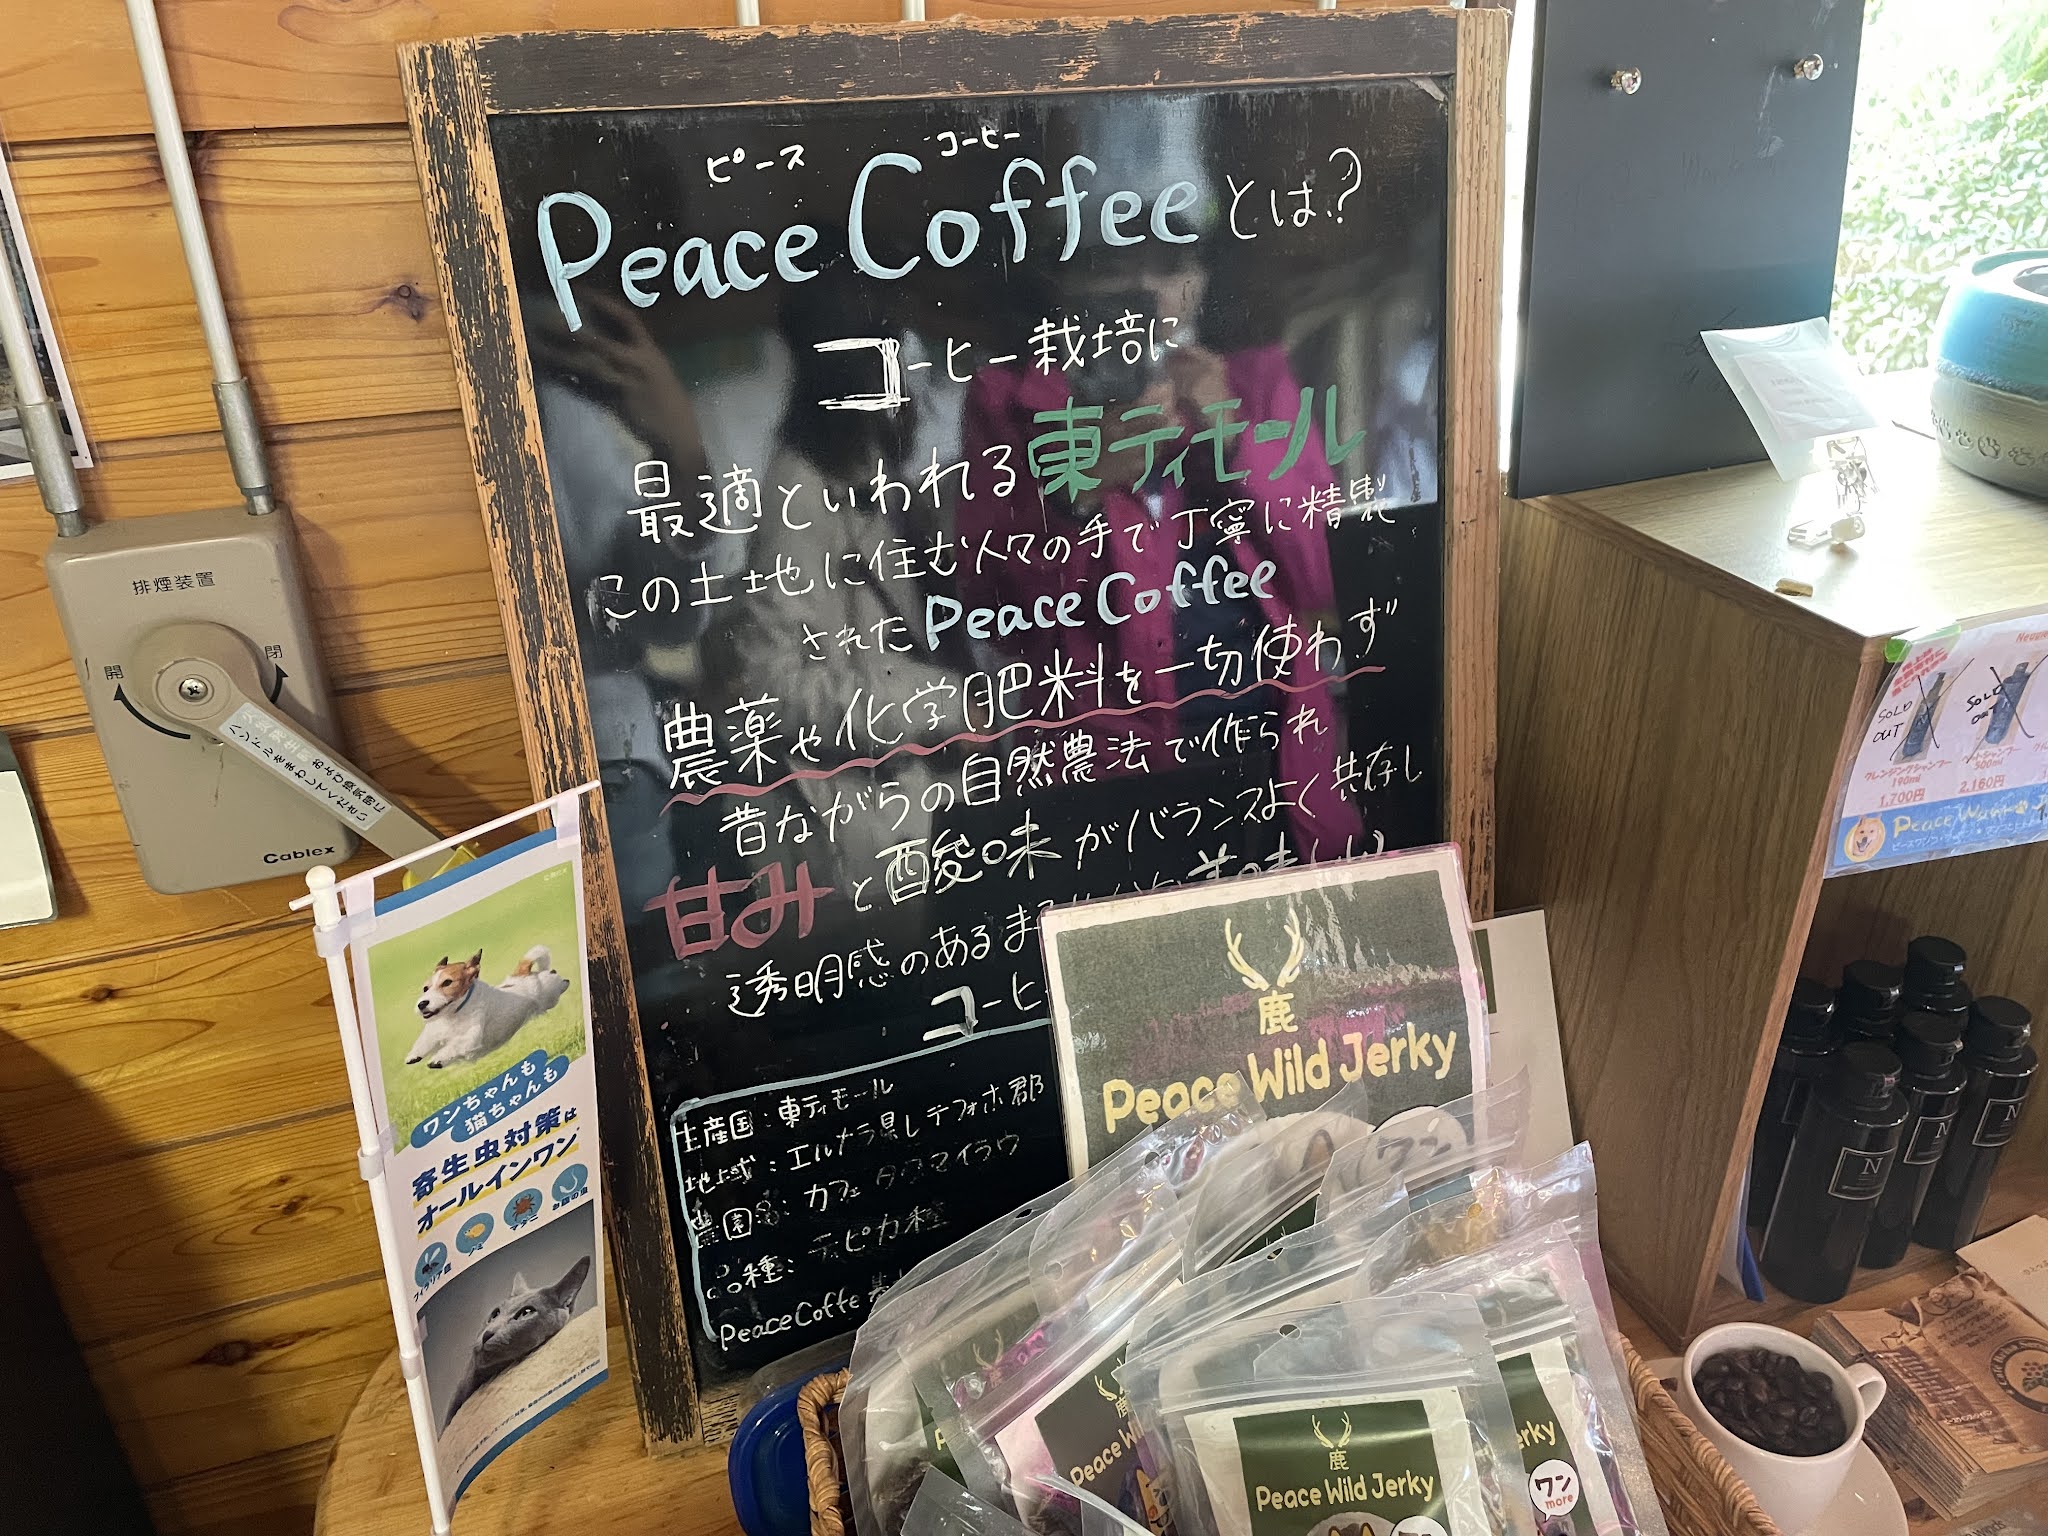 ピース コーヒー
Peace Coffee とは?
コーヒー栽培に
最適といわれる東ティモール
この土地に住む人々の手で丁寧に精製
された Peace Coffee
農薬や化学肥料を一切使わず
昔ながらの自然農法で作られ
甘みと酸味がバランスよく共存し
透明感のあるま
コーヒ
生産国:東ティモール
地域:エルメラ県レテフォホ郡
農園名:カフェ タタマイラウ
品種:ティピカ種
PeaceCoffe
排煙装置
開
閉
火災発生時および換気時に
ハンドルをまわしてください
Cablex
ワンちゃんも
猫ちゃんも
寄生虫対策は
オールインワン
フィラリア症
ノミ
マダニ
お腹の虫
鹿
Peace Wild Jerky
鹿
Peace Wild Jerky
Peace Wi
erky
ワン
more
ワン
SOLD
OUT
SOLD
クレンジングシャンプー
190ml
1,700円
500ml
2,160円
Peace Wan
N
N
N